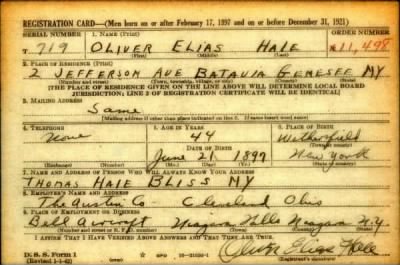 REGISTRATION CARD—(Men born on or after February 17, 1897 and on or before December 31, 1921)
SERIAL NUMBER 1. NAME (Print) ORDER NUMBER
T 719 OLIVER ELIAS HALE 11,498
(First) (Middle) (Last)
2. PLACE OF RESIDENCE (Print)
2 JEFFERSON AVE BATAVIA GENESEE NY
(Number and street) (Town, township, village, or city) (County) (State)
[THE PLACE OF RESIDENCE GIVEN ON THE LINE ABOVE WILL DETERMINE LOCAL BOARD
JURISDICTION; LINE 2 OF REGISTRATION CERTIFICATE WILL BE IDENTICAL]
3. MAILING ADDRESS
Same
[Mailing address if other than place indicated on line 2. If same insert word same]
4. TELEPHONE 5. AGE IN YEARS 6. PLACE OF BIRTH
None 44 Wethersfield
DATE OF BIRTH (Town or county)
June 21 1897 New York
(Exchange) (Number) (Mo.) (Day) (Yr.) (State or country)
7. NAME AND ADDRESS OF PERSON WHO WILL ALWAYS KNOW YOUR ADDRESS
THOMAS HALE BLISS NY
8. EMPLOYER'S NAME AND ADDRESS
The Austin Co Cleveland Ohio
9. PLACE OF EMPLOYMENT OR BUSINESS
Bell Aircraft Niagara Falls Niagara N.Y.
(Number and street or R. F. D. number) (Town) (County) (State)
I AFFIRM THAT I HAVE VERIFIED ABOVE ANSWERS AND THAT THEY ARE TRUE.
D. S. S. Form 1 Oliver Elias Hale
(Revised 1-1-42) GPO (Registrant's signature)